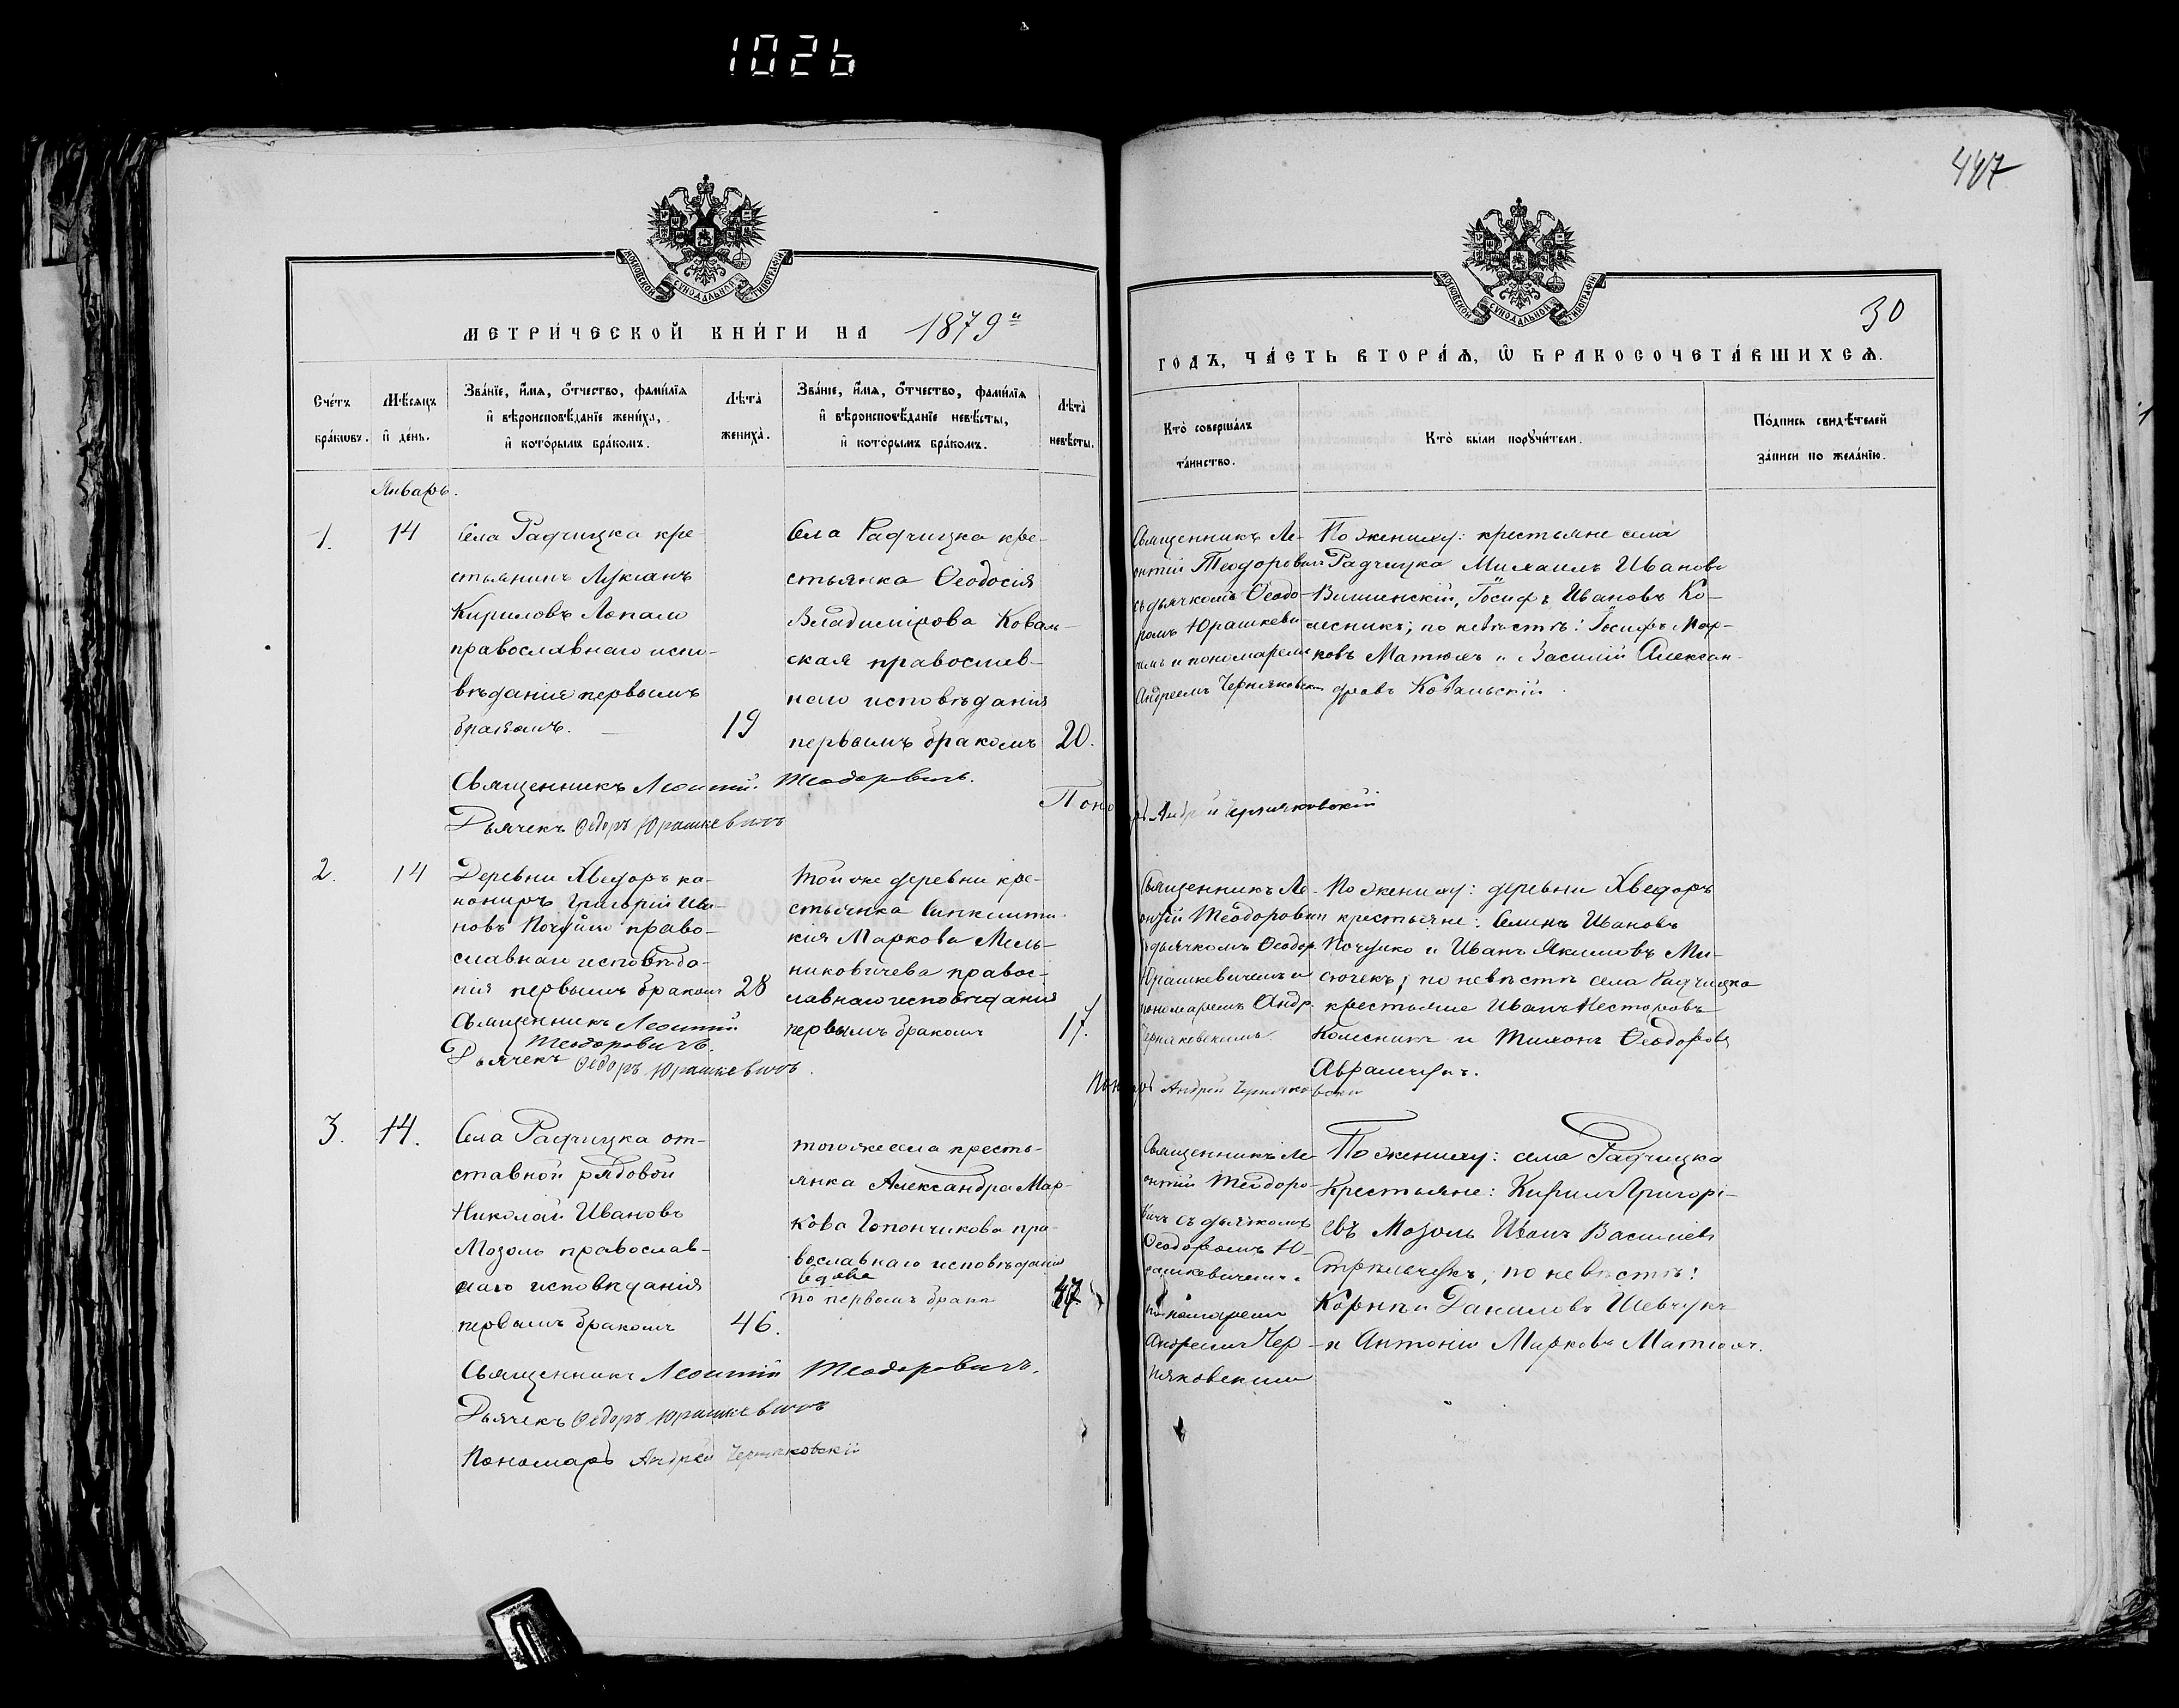 1026
447
МОСКОВСКОЙ СѴНОДАЛЬНОЙ ТИПОГРАФІИ
МЕТРИ́ЧЕСКОЙ КНИ́ГИ НА 1879й
Сче́тъ бра́кѡвъ.
Мѣ́сяцъ и҆ де́нь.
Зва́нїе, и҆́мѧ, ѻ҆́тчество, фами́лїѧ
и҆ вѣроисповѣ́данїе жениха̀,
и҆ кото́рымъ бра́комъ.
Лѣ́та жениха̀.
Зва́нїе, и҆́мѧ, ѻ҆́тчество, фами́лїѧ
и҆ вѣроисповѣ́данїе невѣ́сты,
и҆ кото́рымъ бра́комъ.
Лѣ́та невѣ́сты.
Январь.
1.
14
Села Радчицка кре-
стьянинъ Лукіанъ
Кириловъ Лопато
православнаго испо-
вѣданія первымъ
бракомъ.
19
Села Радчицка кре-
стьянка Ѳеодосія
Владимірова Коваль-
ская православ-
наго исповѣданія
первымъ бракомъ
20.
Священникъ Леонтій Теодоровичъ.
Дьячекъ Ѳедоръ Юрашкевичъ
2.
14
Деревни Хведоръ ка-
нониръ Григорій Ива-
новъ Почуйко право-
славнаго исповѣда-
нія первымъ бракомъ
28
Той же деревни кре-
стьянка Синклити-
кія Маркова Мель-
никовичева правос-
лавнаго исповѣданія
первымъ бракомъ
17.
Священникъ Леонтій
Теодоровичъ.
Дьячекъ Ѳедоръ Юрашкевичъ
3.
14.
Села Радчицка от-
ставной рядовой
Николай Ивановъ
Мозоль православ-
наго исповѣданія
первымъ бракомъ
46.
того же села кресть-
янка Александра Мар-
кова Гопончикова пра-
вославнаго исповѣданія
вдова
по первомъ бракѣ
47
Священникъ Леонтій Теодоровичъ.
Дьячекъ Ѳедоръ Юрашкевичъ
Пономарь Андрей Черняковскій
МОСКОВСКОЙ СѴНОДАЛЬНОЙ ТИПОГРАФІИ
30
ГОДЪ, ЧА́СТЬ ВТОРА́Ѧ, Ѽ БРАКОСОЧЕТА́ВШИХСѦ.
Кто̀ соверша́лъ
та́инство.
Кто̀ бы́ли поручи́тели.
По́дпись свидѣ́телей
за́писи по жела́нїю.
Священникъ Ле-
онтій Теодоровичъ
съ дьячкомъ Ѳеодо-
ромъ Юрашкеви-
чемъ и пономаремъ
Андреемъ Черняковскимъ
По жениху: крестьяне села
Радчицка Михаилъ Ивановъ
Вишинскій, Іосифъ Ивановъ Ко-
лесникъ; по невѣстѣ: Іосифъ Мар-
ковъ Матюлъ и Василій Алексан-
дровъ Ковальскій.
Пономарь Андрей Черняковскій
Священникъ Ле-
онтій Теодоровичъ
съ дьячкомъ Ѳеодор.
Юрашкевичемъ и
пономаремъ Андр.
Черняковскимъ
По жениху: деревни Хведоръ
крестьяне: Семенъ Ивановъ
Почуйко и Иванъ Якимовъ Ми-
сючекъ; по невѣстѣ села Радчицка
крестьяне Иванъ Несторовъ
Колесникъ и Тихонъ Ѳеодоровъ
Аврамчукъ.
Пономарь Андрей Черняковскій
Священникъ Ле-
онтій Теодоро-
вичъ съ дьячкомъ
Ѳеодоромъ Ю-
рашкевичемъ и
пономаремъ
Андреемъ Чер-
няковскимъ
По жениху: села Радчицка
Крестьяне: Кирилъ Григорі-
евъ Мозоль Иванъ Василіевъ
Стрѣльчукъ; по невѣстѣ:
Корнилій Даниловъ Шевчукъ
и Антоній Марковъ Матюлъ.